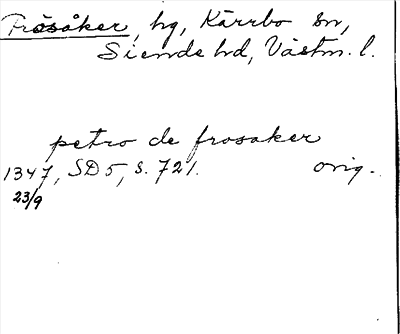 Frösåker, hg, Kärrbo sn,
Siende hd, Västm. l.
petro de frosaker
1347, SD 5, s. 721. orig.
23/9